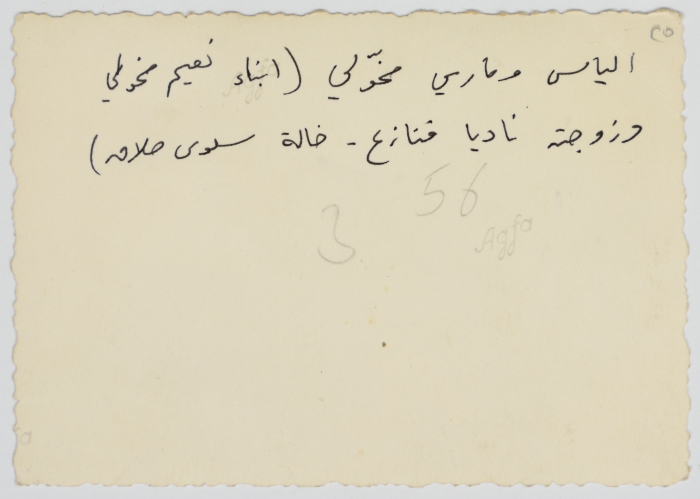 ٢٥
الياس وماري مخّولي (ابناء نعيم مخولي
وزوجته ناديا قنازع - خالة سلوى صلاح)
56
3
Agfa
Agfa